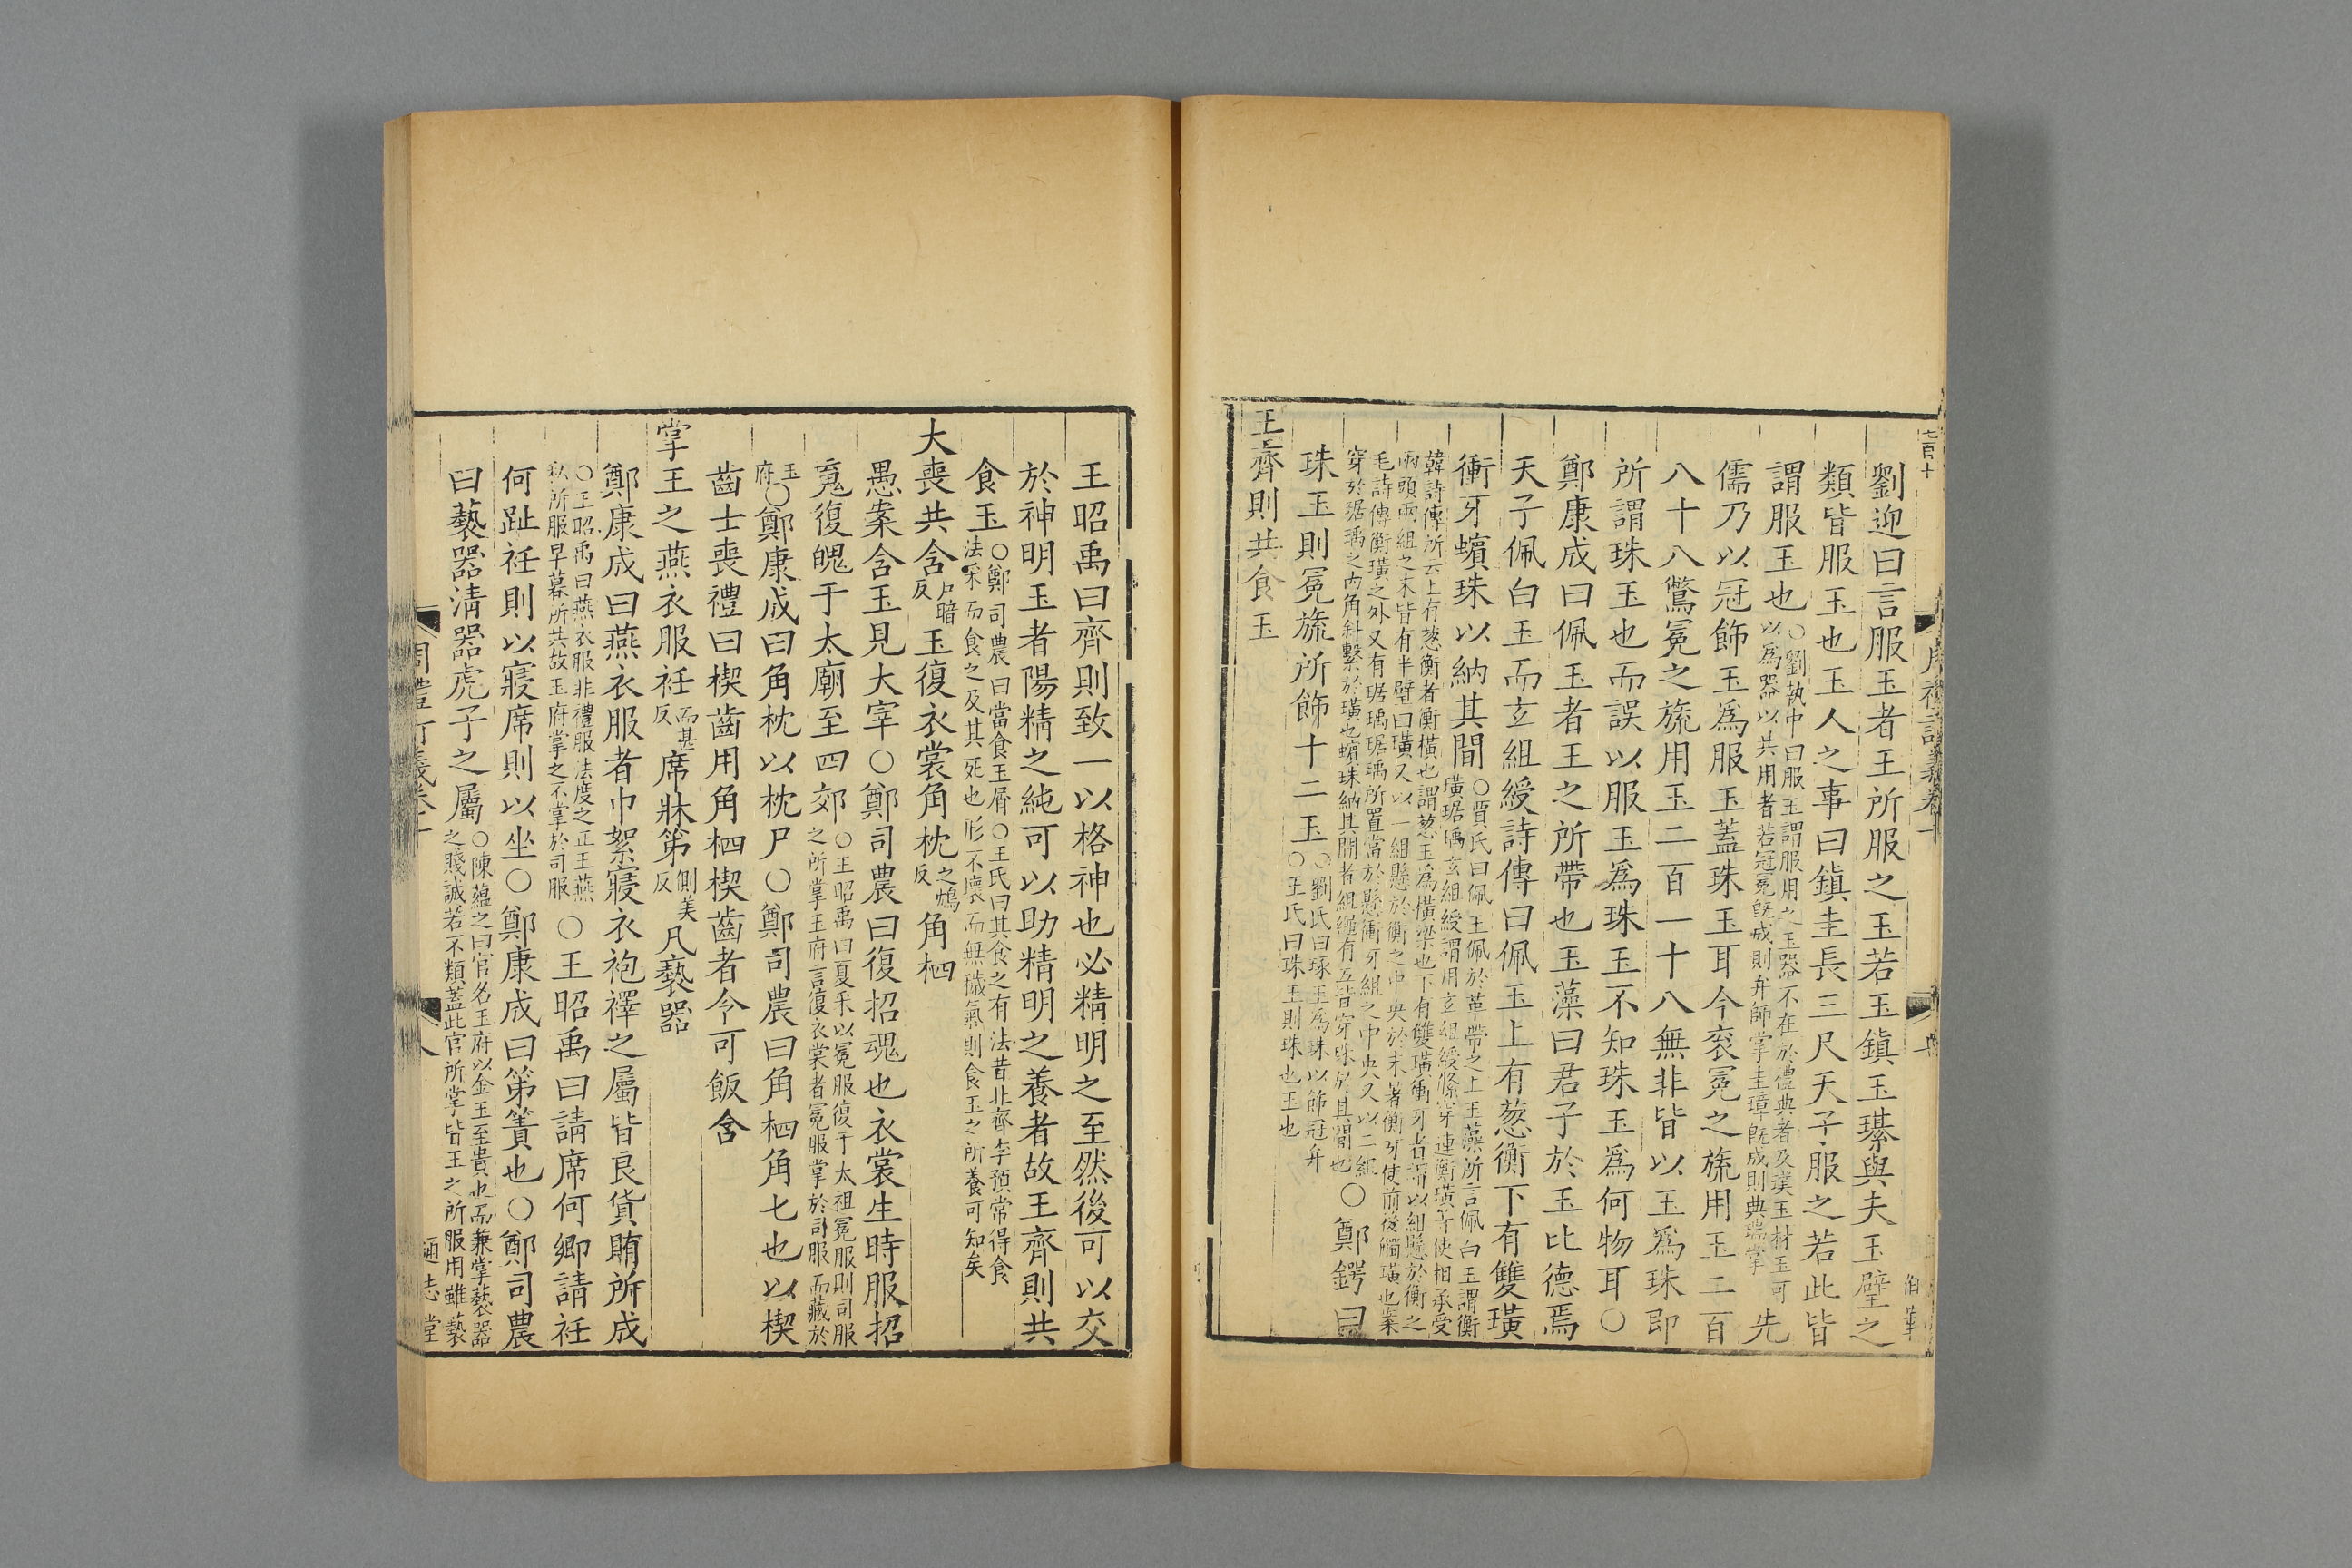 七百十
劉迎曰言服玉者王所服之玉若玉鎮玉瑧與夫玉璧之
類皆服玉也玉人之事曰鎮圭長三尺天子服之若此皆
謂服玉也○劉執中曰服玉謂服用之玉器不在於禮典者及璞玉材玉可
以為器以共用者若冠冕旣成則弁師掌圭璋旣成則典瑞掌先
儒乃以冠飾玉為服玉蓋珠玉耳今衮冕之旒用玉二百
八十八鷩冕之旒用玉二百一十八無非皆以玉為珠即
所謂珠玉也而誤以服玉為珠玉不知珠玉為何物耳○
鄭康成曰佩玉者王之所帶也玉藻曰君子於玉比德焉
天子佩白玉而玄組綬詩傳曰佩玉上有葱衡下有雙璜
衝牙蠙珠以納其間○賈氏曰佩玉佩於革帶之上玉藻所言佩白玉謂衡
璜琚瑀玄組綬謂用玄組綬絛穿連衡璜等使相承受
韓詩傳所云上有葱衡者衡橫也謂葱玉為橫梁也下有雙璜衝牙者謂以組懸於衡之
兩頭兩組之末皆有半璧曰璜又以一組懸於衡之中央於末著衝牙使前後觸璜也案
毛詩傳衡璜之外又有琚瑀琚瑀所置當於懸衝牙組之中央又以二組
穿於琚瑀之內角斜繫於璜也蠙珠納其間者組繩有五皆穿珠於其間也○鄭鍔曰
珠玉則冕旒所飾十二玉○劉氏曰琢玉為珠以飾冠弁
○王氏曰珠玉則珠也玉也
王齊則共食玉
王昭禹曰齊則致一以格神也必精明之至然後可以交
於神明玉者陽精之純可以助精明之養者故王齊則共
食玉○鄭司農曰當食玉屑○王氏曰其食之有法昔北齊李預常得食
法采而食之及其死也形不壞而無穢氣則食玉之所養可知矣
大喪共含戶暗反玉復衣裳角枕之鴆反角柶
愚案含玉見大宰○鄭司農曰復招魂也衣裳生時服招
䰟復魄于太廟至四郊○王昭禹曰夏采以冕服復于太祖冕服則司服
之所掌玉府言復衣裳者冕服掌於司服而藏於
玉府○鄭康成曰角枕以枕尸○鄭司農曰角柶角七也以楔
齒士喪禮曰楔齒用角柶楔齒者令可飯含
掌王之燕衣服衽而甚反席牀第側美反凡褻器
鄭康成曰燕衣服者巾絮寢衣袍襗之屬皆良貨賄所成
○王昭禹曰燕衣服非禮服法度之正王燕
私所服早暮所共故玉府掌之不掌於司服○王昭禹曰請席何鄉請衽
何趾衽則以寢席則以坐○鄭康成曰第簀也○鄭司農
曰褻器清器虎子之屬○陳蘊之曰官名玉府以金玉至貴也而兼掌褻器
之賤誠若不類蓋此官所掌皆王之所服用雖褻
通志堂